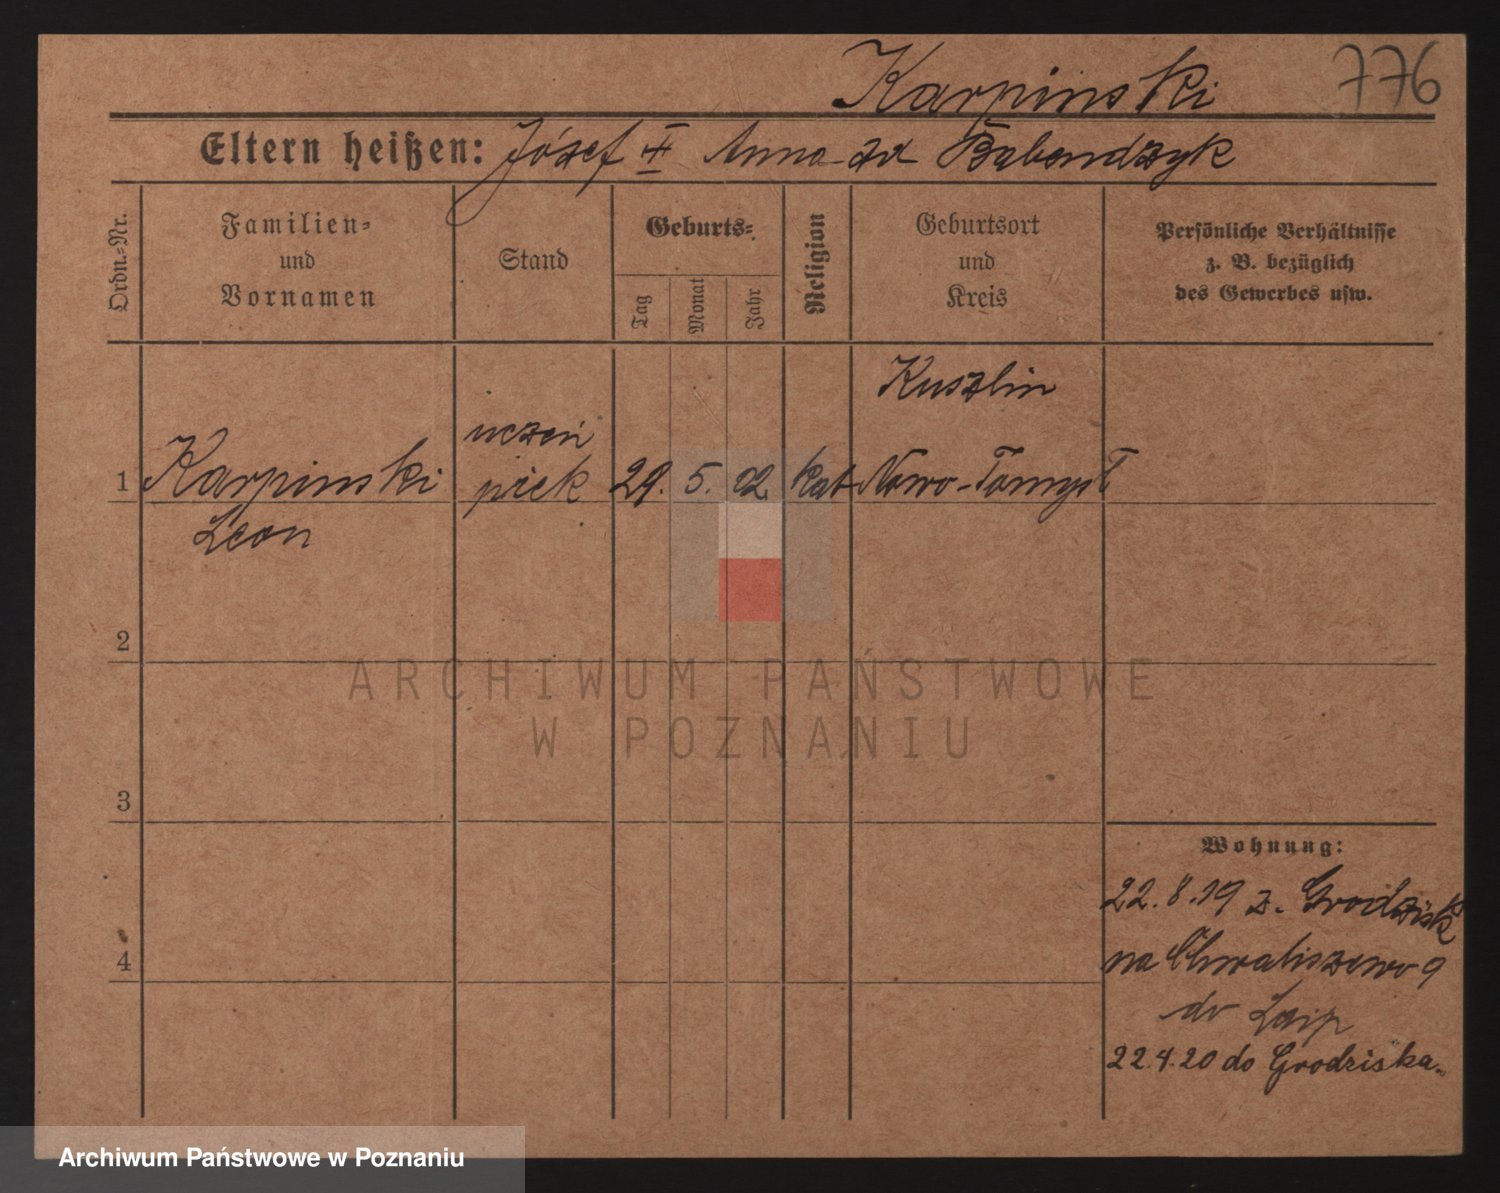 Karpinski 776
Eltern heißen: Józef i Anna zd Babendzyk
Ordn.=Nr.
Familien=
und
Vornamen
Stand
Geburts=
Tag
Monat
Jahr
Religion
Geburtsort
und
Kreis
Persönliche Verhältnisse
z. B. bezüglich
des Gewerbes usw.
Kuszlin
uczeń
1 Karpinski piek 29. 5. 02 kat Nowo-Tomysł
Leon
2
ARCHIWUM PAŃSTWOWE
W POZNANIU
3
Wohnung:
22.8.19 z. Grodzisk
na Chwaliszewo 9
4
do
22.4.20 do Grodziska.
Archiwum Państwowe w Poznaniu